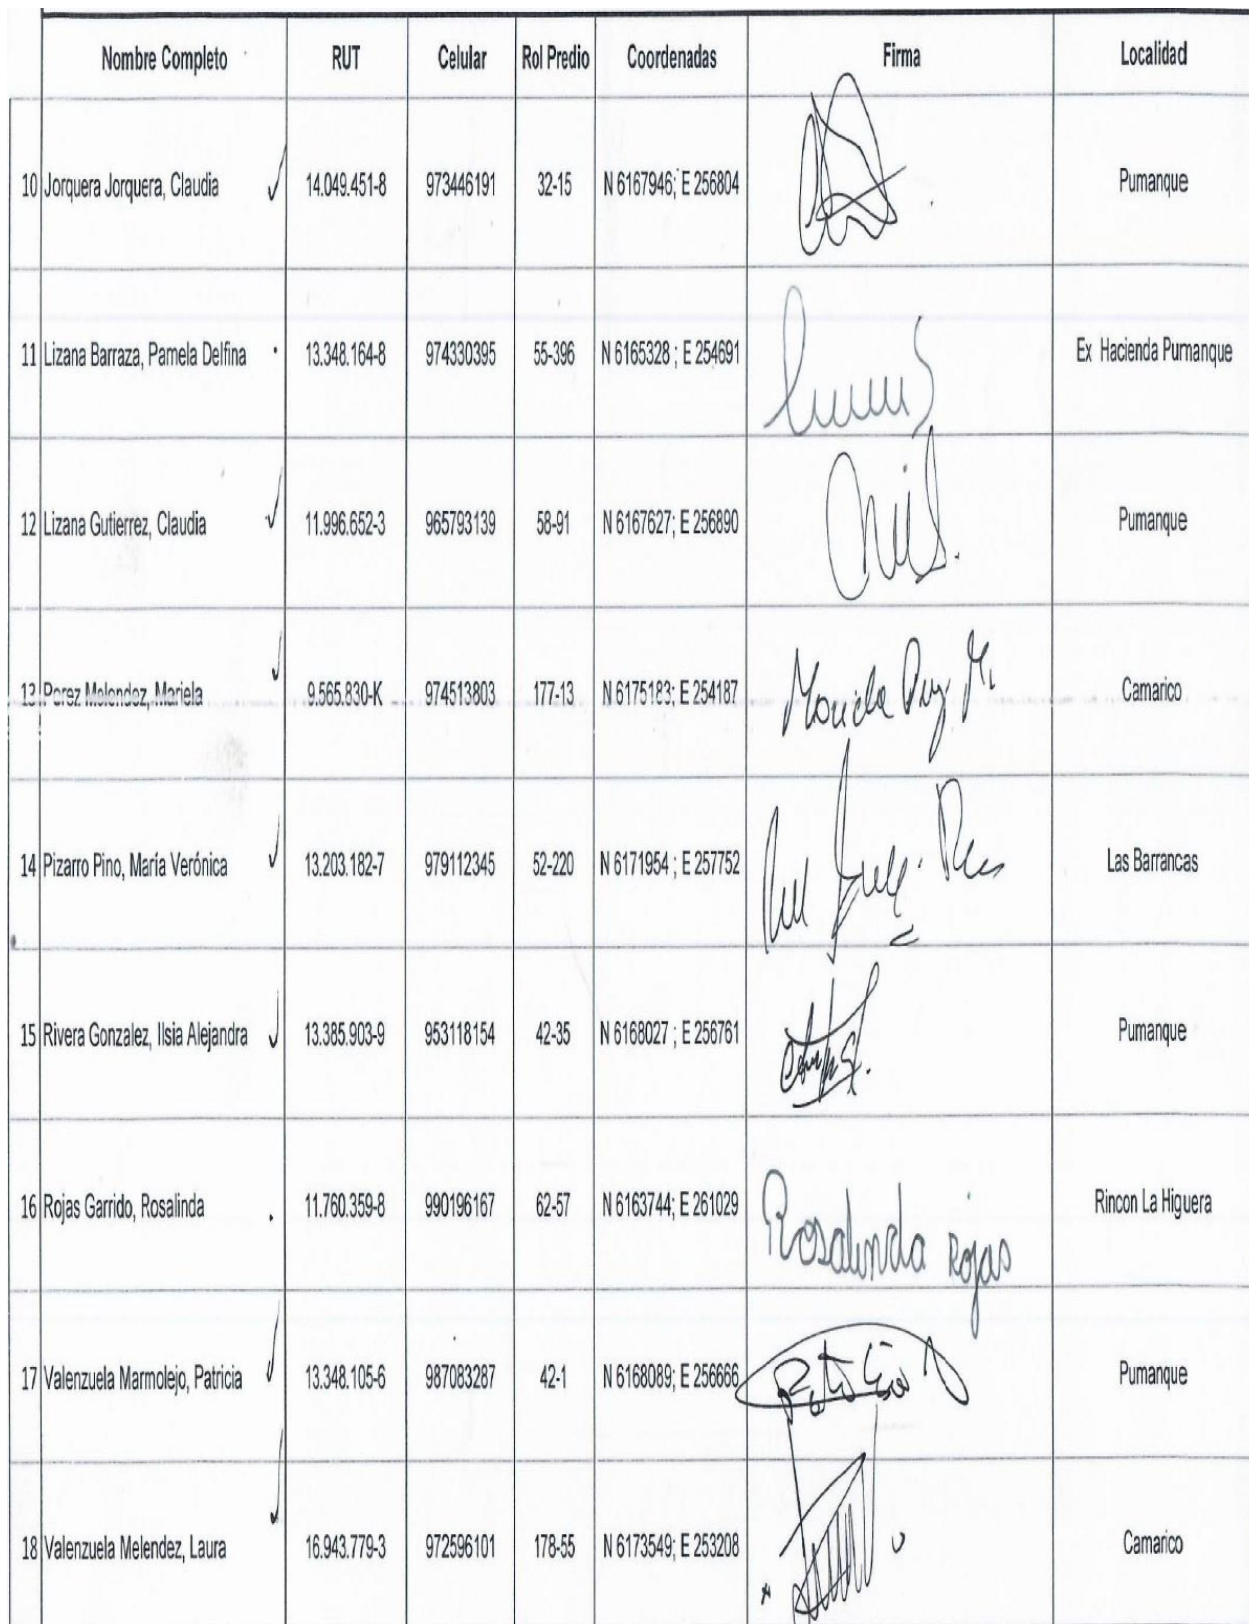 Nombre Completo RUT Celular Rol Predio Coordenadas Firma Localidad
10 Jorquera Jorquera, Claudia 14.049.451-8 973446191 32-15 N 6167946; E 256804 Pumanque
11 Lizana Barraza, Pamela Delfina 13.348.164-8 974330395 55-396 N 6165328 ; E 254691 Ex Hacienda Pumanque
12 Lizana Gutierrez, Claudia 11.996.652-3 965793139 58-91 N 6167627; E 256890 Pumanque
13 Perez Melendez, Mariela 9.565.830-K 974513803 177-13 N 6175183; E 254187 Camarico
14 Pizarro Pino, María Verónica 13.203.182-7 979112345 52-220 N 6171954 ; E 257752 Las Barrancas
15 Rivera Gonzalez, Ilsia Alejandra 13.385.903-9 953118154 42-35 N 6168027 ; E 256761 Pumanque
16 Rojas Garrido, Rosalinda 11.760.359-8 990196167 62-57 N 6163744; E 261029 Rosalinda Rojas Rincon La Higuera
17 Valenzuela Marmolejo, Patricia 13.348.105-6 987083287 42-1 N 6168089; E 256666 Pumanque
18 Valenzuela Melendez, Laura 16.943.779-3 972596101 178-55 N 6173549; E 253208 Camarico